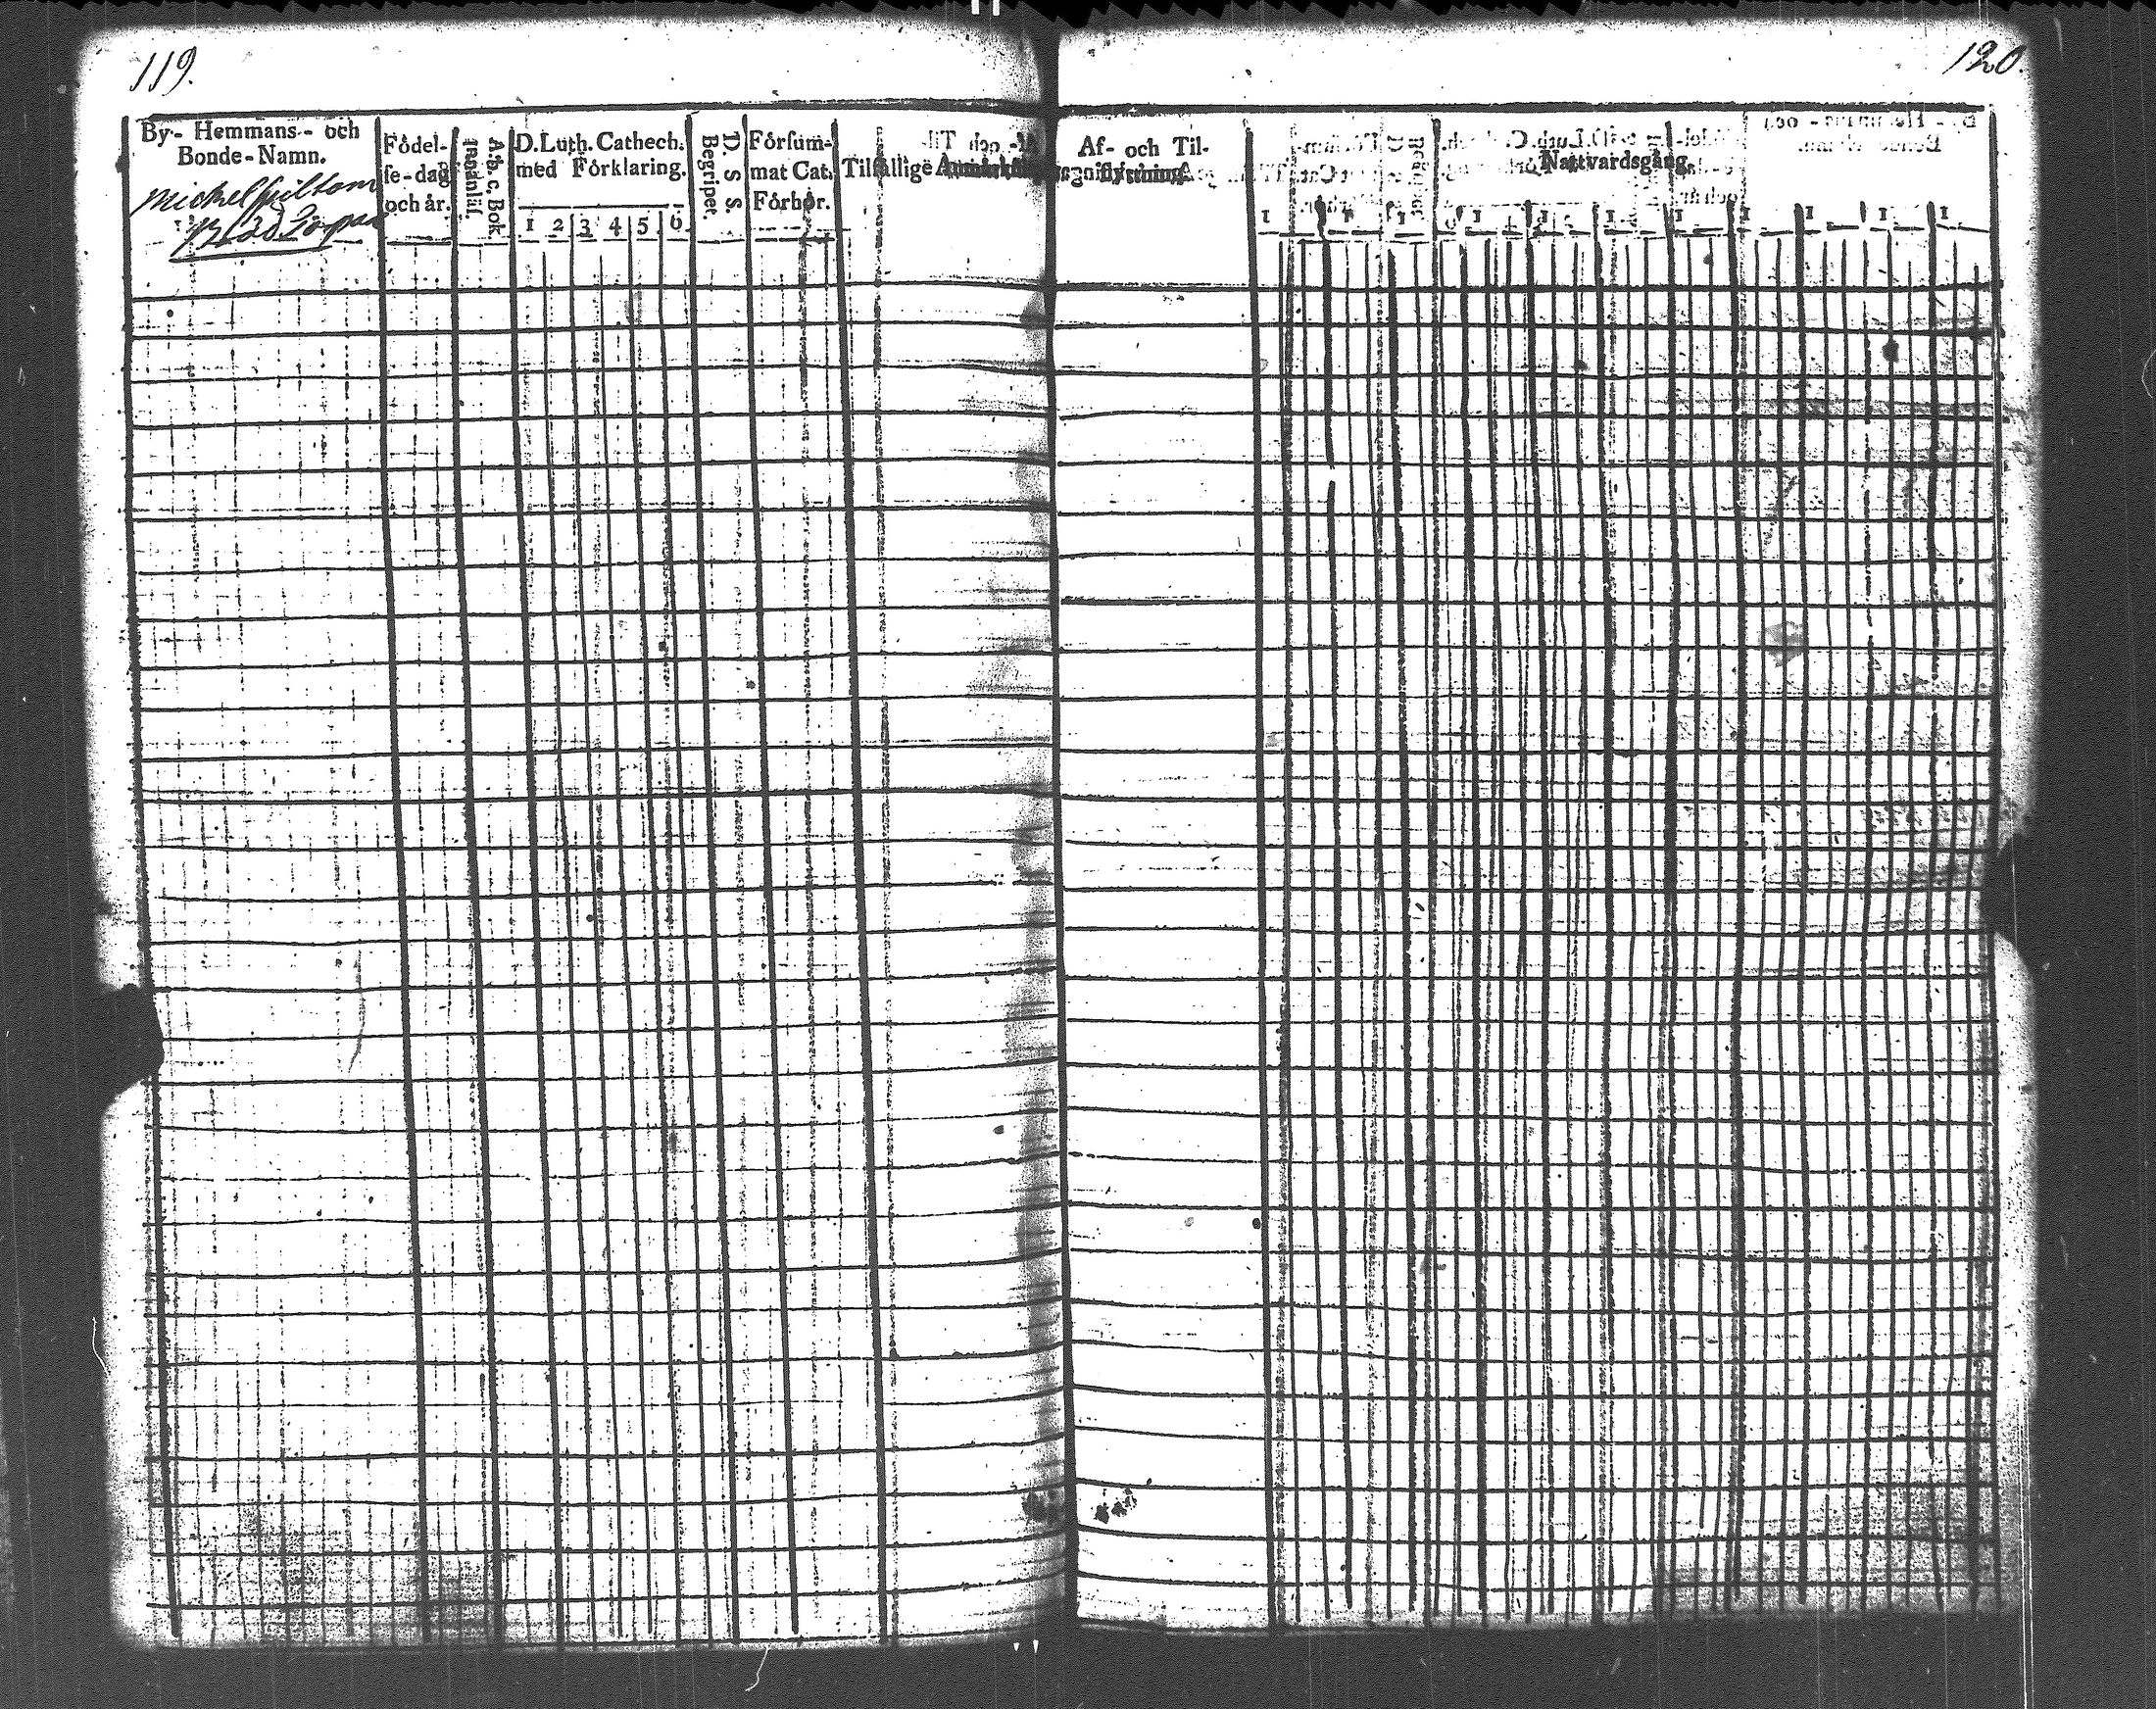 119.
120.
By- Hemmans- och
Bonde-Namn.
Michelspiltom
Födel-
se-dag
och år.
A. b. c. Bok
Innanläs.
D. Luth. Cathech.
med Förklaring.
1 2 3 4 5 6
D. S. S.
Begripet.
Försum-
mat Cat.
Förhör.
Tilfällige Anmärkn
Af- och Til-
flyttning.
Nattvardsgång.
1 1 1 1 1 1 1 1 1 1 1